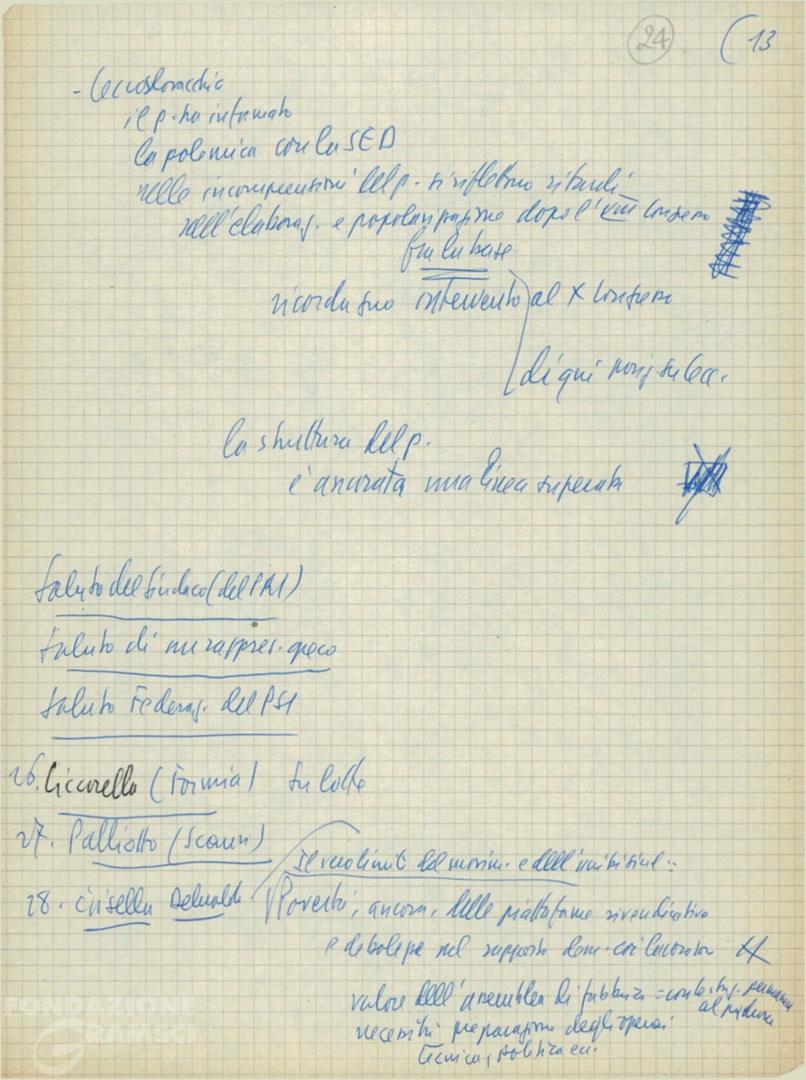 24 (13
- Cecoslovacchia
il p. ha informato
la polemica con la SED
nelle incomprensioni del p. si riflettono ritardi
nell'elaboraz. e popolarizzazione dopo l'VIII Congresso
fra la base
ricorda suo intervento al X Congresso
di qui posiz. su Cec.
la struttura del p.
è ancorata una linea superata
Saluto del Sindaco (del PRI)
Saluto di un rappres. greco
Saluto Federaz. del PSI
26. Ciccarello (Formia) su lotte
27. Palliotto (Scauri)
Il vero limite del movim. e dell'unità sind.:
28. Crisella
Povertà, ancora, delle piattaforme rivendicative
e debolezza nel rapporto dem. coi lavoratori
valore dell'assemblea di fabbrica = contestaz. permanente
al padrone
necessità preparazione degli operai
tecnica, politica ecc.
FONDAZIONE
GRAMSCI